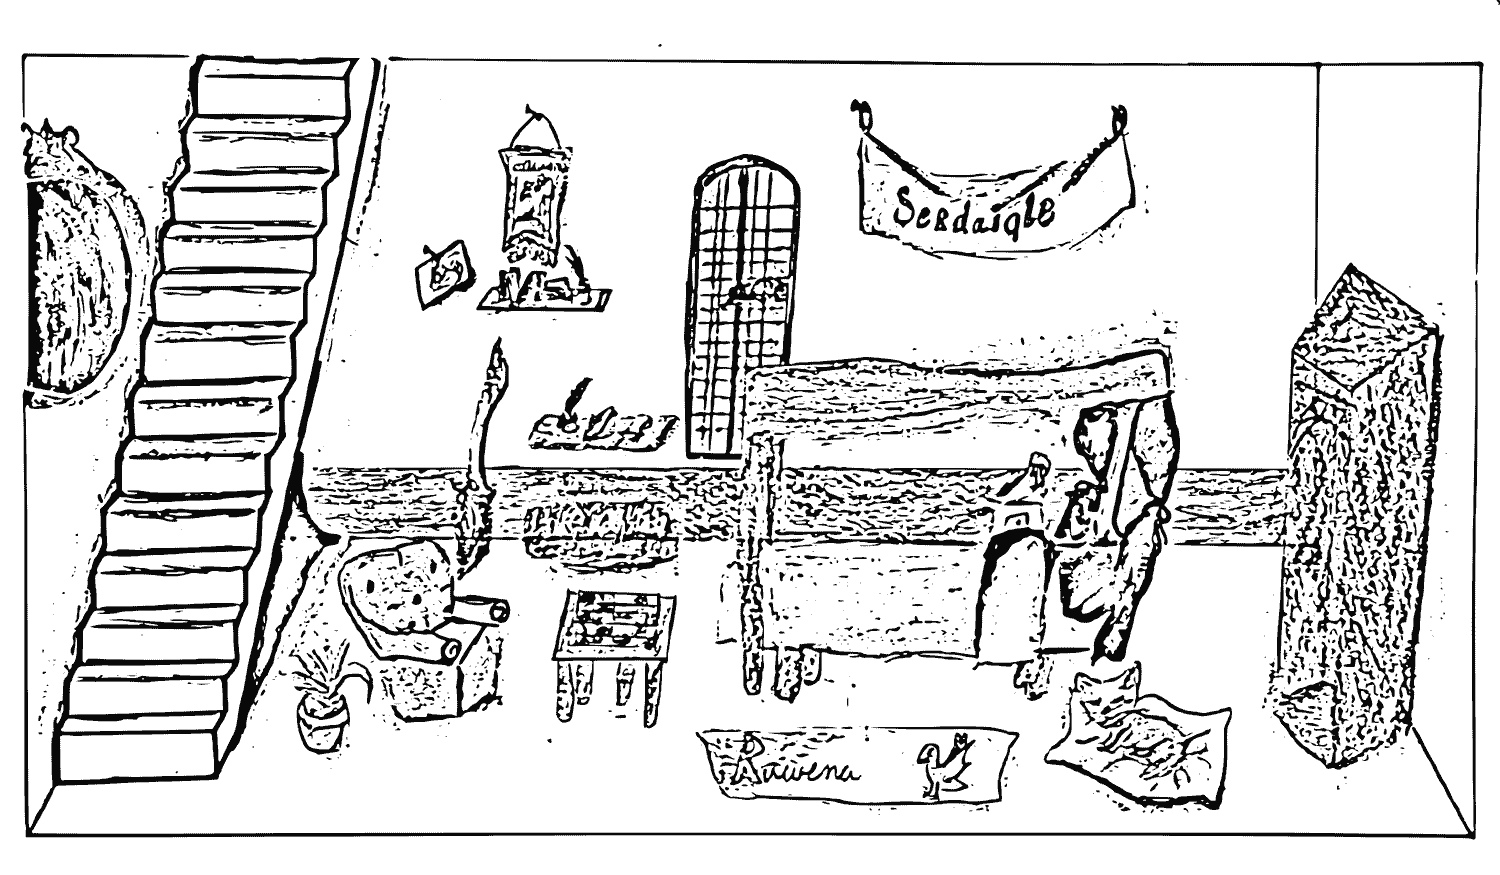 Serdaigle
Rowena